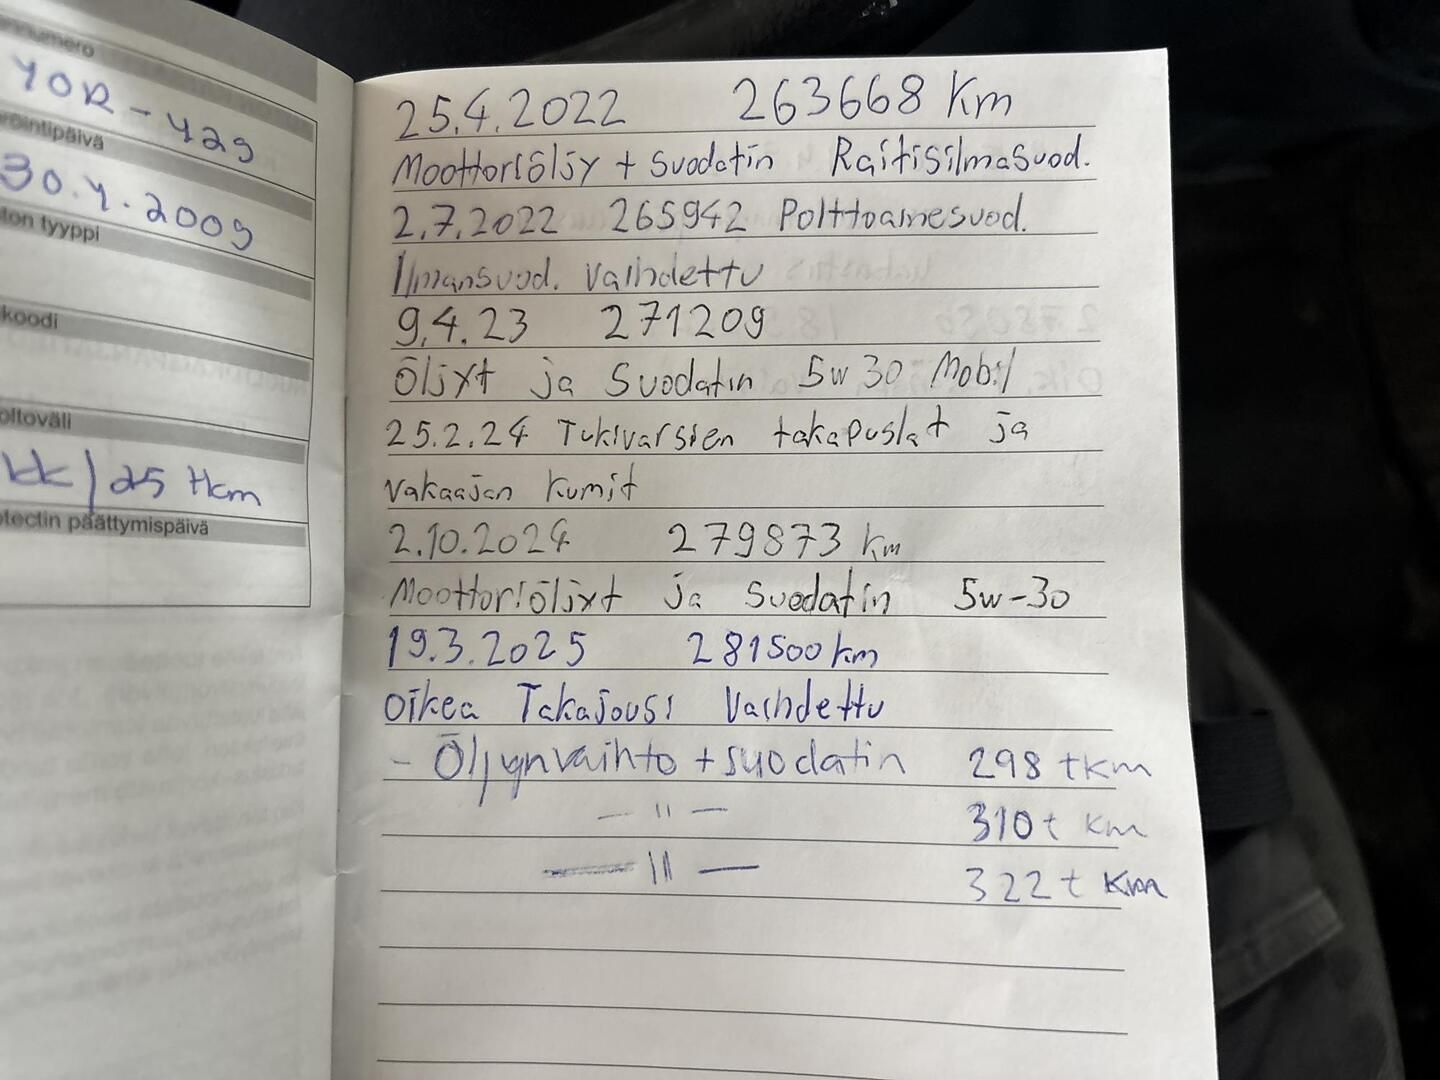 nnumero
YOR-429
röintipäivä
30.4.2009
ton tyyppi
koodi
oltoväli
kk/25 tkm
otectin päättymispäivä
25.4.2022 263668 Km
Moottoriöljy + suodatin Raitisilmasuod.
2.7.2022 265942 Polttoainesuod.
Ilmansuod. vaihdettu
9.4.23 271209
Öljyt ja Suodatin 5w30 Mobil
25.2.24 Tukivarsien takapuslat ja
vakaajan kumit
2.10.2024 279873 km
Moottoriöljyt ja Suodatin 5w-30
19.3.2025 281500 km
oikea Takajousi Vaihdettu
- Öljynvaihto + suodatin 298 tkm
— " — 310 t km
— " — 322 t Km